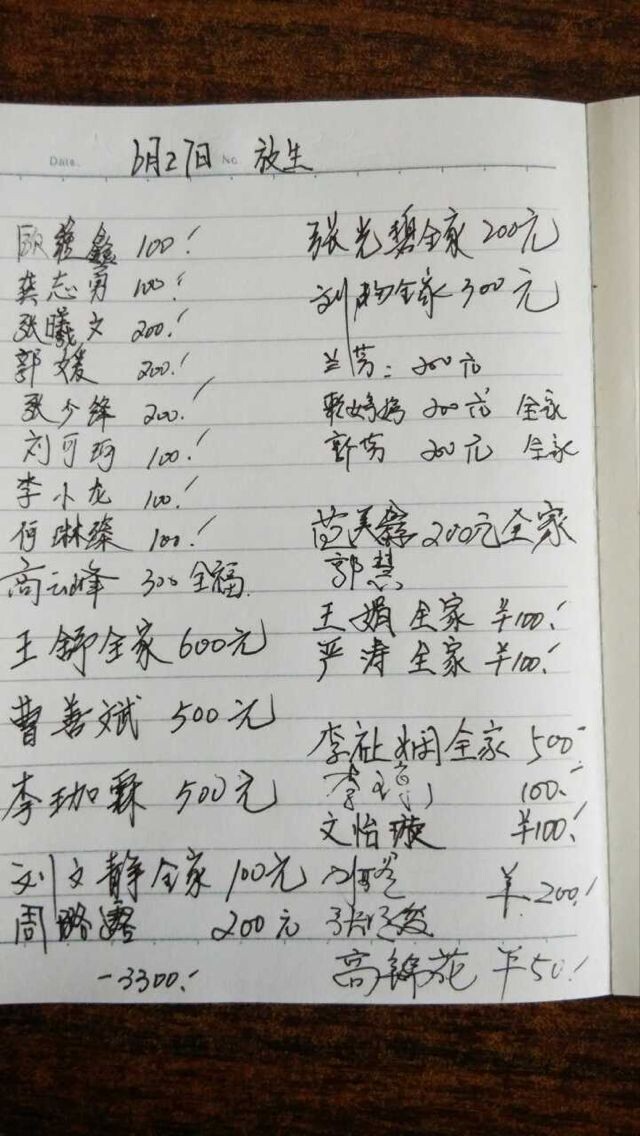 Date. 6月27日 No. 放生
欧 鑫 100.!
龚志勇 100.!
张曦文 200.!
郭媛 200.!
张少锋 200.!
刘可珂 100.!
李小龙 100.!
何琳璨 100.!
高云峰 300全福.
王舒全家600元
曹善斌 500元
李珈霖 500元
刘文静全家 100元
周璐露 200元
-3300.!
张光碧全家200元
刘 全家300元
兰芳: 200元
200元 全家
200元 全家
范美 200元全家
郭慧
王娟全家 ¥100.!
严涛全家 ¥100.!
李祉娴全家 500
李 100.!
文怡璇 ¥100.!
¥200.!
张
高锦花 ¥50.!